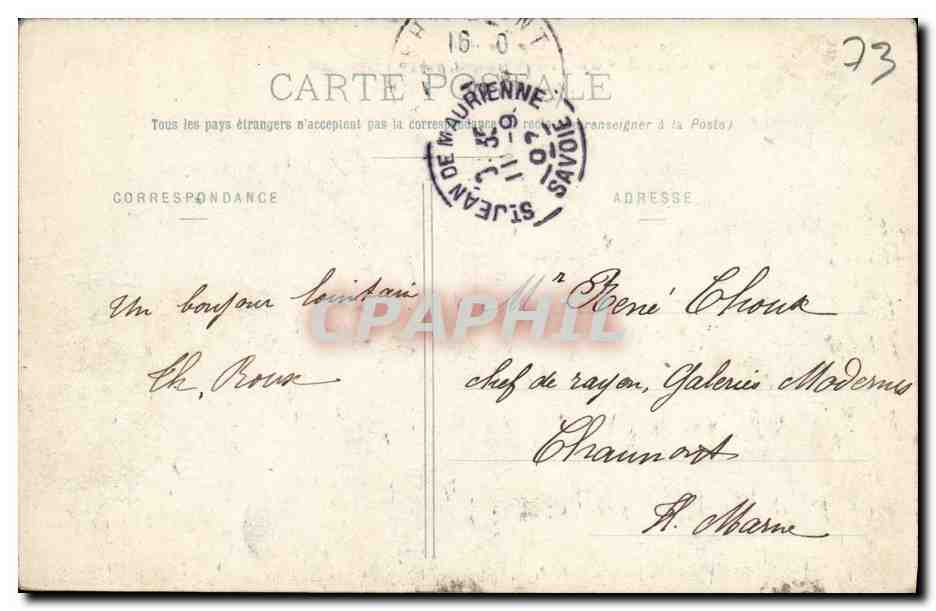 73
CARTE POSTALE
Tous les pays étrangers n'acceptent pas la correspondance au recto (se renseigner à la Poste)
ST JEAN DE MAURIENNE
11-9
07
SAVOIE
CORRESPONDANCE
ADRESSE
Un bonjour lointain
Th. Roux
Mr René Thoux
chef de rayon, Galeries Modernes
Chaumont
H. Marne
CPAPHIL